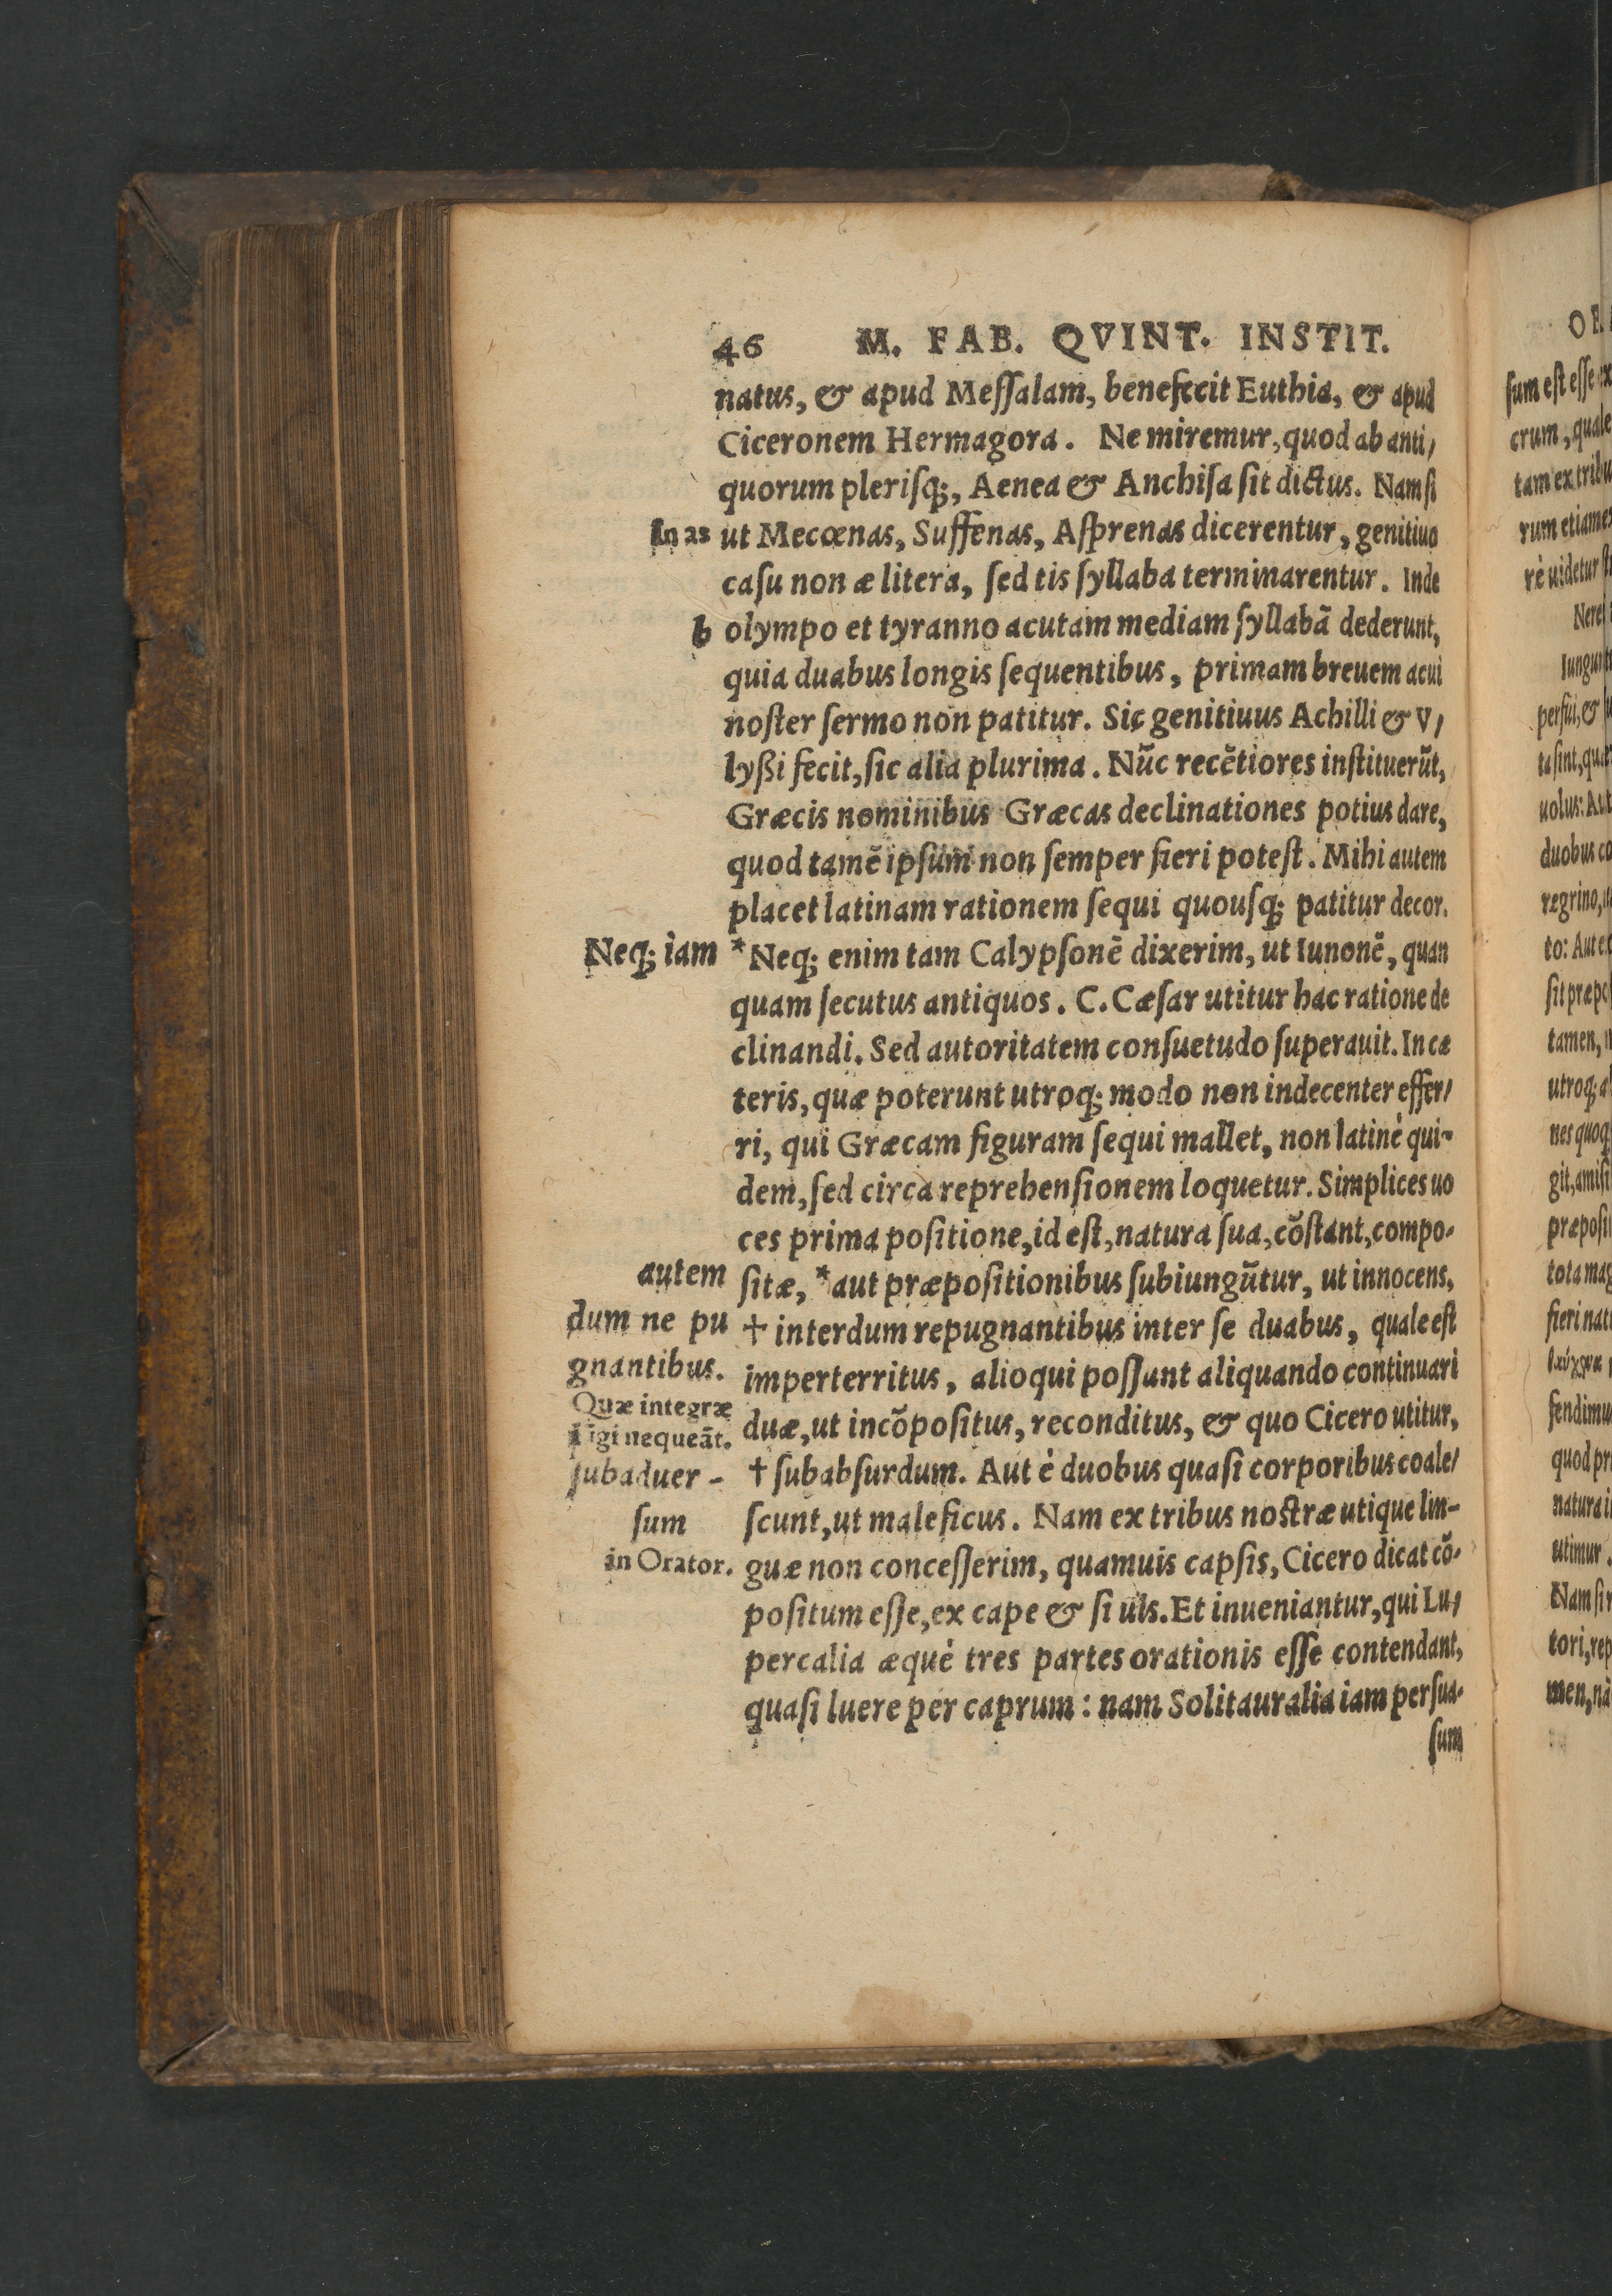 46 M. FAB. QVINT. INSTIT.
natus, & apud Meſſalam, benefecit Euthia, & apud
Ciceronem Hermagora. Ne miremur, quod ab anti/
quorum pleriſq;, Aenea & Anchiſa ſit dictus. Nam ſi
In as
ut Mecœnas, Suffenas, Aſprenas dicerentur, genitiuo
caſu non æ litera, ſed tis ſyllaba terminarentur. Inde
b
olympo et tyranno acutam mediam ſyllabã dederunt,
quia duabus longis ſequentibus, primam breuem acui
noſter ſermo non patitur. Sic genitiuus Achilli & V/
lyßi fecit, ſic alia plurima. Nũc recẽtiores inſtituerũt,
Græcis nominibus Græcas declinationes potius dare,
quod tamẽ ipſum non ſemper fieri poteſt. Mihi autem
placet latinam rationem ſequi quouſq; patitur decor.
Neq; iam
*Neq; enim tam Calypſonẽ dixerim, ut Iunonẽ, quan
quam ſecutus antiquos. C. Cæſar utitur hac ratione de
clinandi. Sed autoritatem conſuetudo ſuperauit. In cæ
teris, quæ poterunt utroq; modo non indecenter effer/
ri, qui Græcam figuram ſequi mallet, non latinè qui-
dem, ſed circa reprehenſionem loquetur. Simplices uo
ces prima poſitione, id eſt, natura ſua, cõſtant, compo-
autem
ſitæ, *aut præpoſitionibus ſubiungũtur, ut innocens,
dum ne pu
† interdum repugnantibus inter ſe duabus, quale eſt
gnantibus.
imperterritus, alioqui poſſunt aliquando continuari
Quæ integræ
duæ, ut incõpoſitus, reconditus, & quo Cicero utitur,
ligi nequeãt.
ſubaduer-
† ſubabſurdum. Aut è duobus quaſi corporibus coale/
ſum
ſcunt, ut maleficus. Nam ex tribus noſtræ utique lin-
in Orator.
guæ non conceſſerim, quamuis capſis, Cicero dicat cõ-
poſitum eſſe, ex cape & ſi uls. Et inueniantur, qui Lu/
percalia æquè tres partes orationis eſſe contendant,
quaſi luere per caprum: nam Solitauralia iam perſua-
ſum
OR
ſum eſt eſſe ex
crum, quale
tam ex tribu
rum etiam ex
rè uidetur
Nerei
perſui, &
ta ſint, quæ
uolus: Aut
duobus co
regrino,
to: Aut e
ſit præpo
tamen,
utroq; a
nes quoq;
git, amiſi
præpoſi
tota mag
fieri nat
fendimu
quod pr
natura i
utimur.
Nam ſi
tori, rep
men, nã